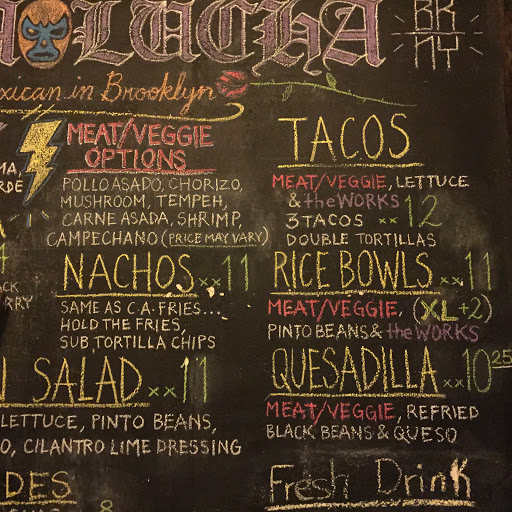 A LUCHA
BK
NY
xican in Brooklyn
MEAT/VEGGIE
OPTIONS
POLLO ASADO, CHORIZO,
MUSHROOM, TEMPEH,
CARNE ASADA, SHRIMP,
CAMPECHANO (PRICE MAY VARY)
NACHOS xx 11
SAME AS C.A. FRIES...
HOLD THE FRIES,
SUB TORTILLA CHIPS
SALAD xx 11
LETTUCE, PINTO BEANS,
O, CILANTRO LIME DRESSING
DES
8
TACOS
MEAT/VEGGIE, LETTUCE
& the WORKS
3 TACOS xx 12
DOUBLE TORTILLAS
RICE BOWLS xx 11
MEAT/VEGGIE, (XL+2)
PINTO BEANS & the WORKS
QUESADILLA xx 10 25
MEAT/VEGGIE, REFRIED
BLACK BEANS & QUESO
Fresh Drink